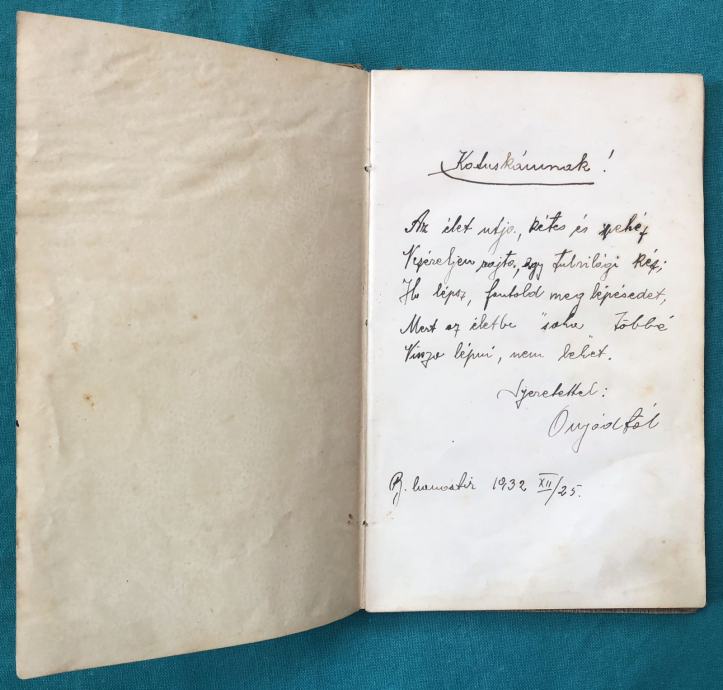 Katuskámnak!
Az élet utja, kétes és nehéz
Vezéreljen rajta, egy tulvilági kéz;
Ha lépsz, fontold meg lépésedet,
Mert az életbe "soha" többé
Vissza lépni, nem lehet.
Szeretettel:
1932 XII/25.